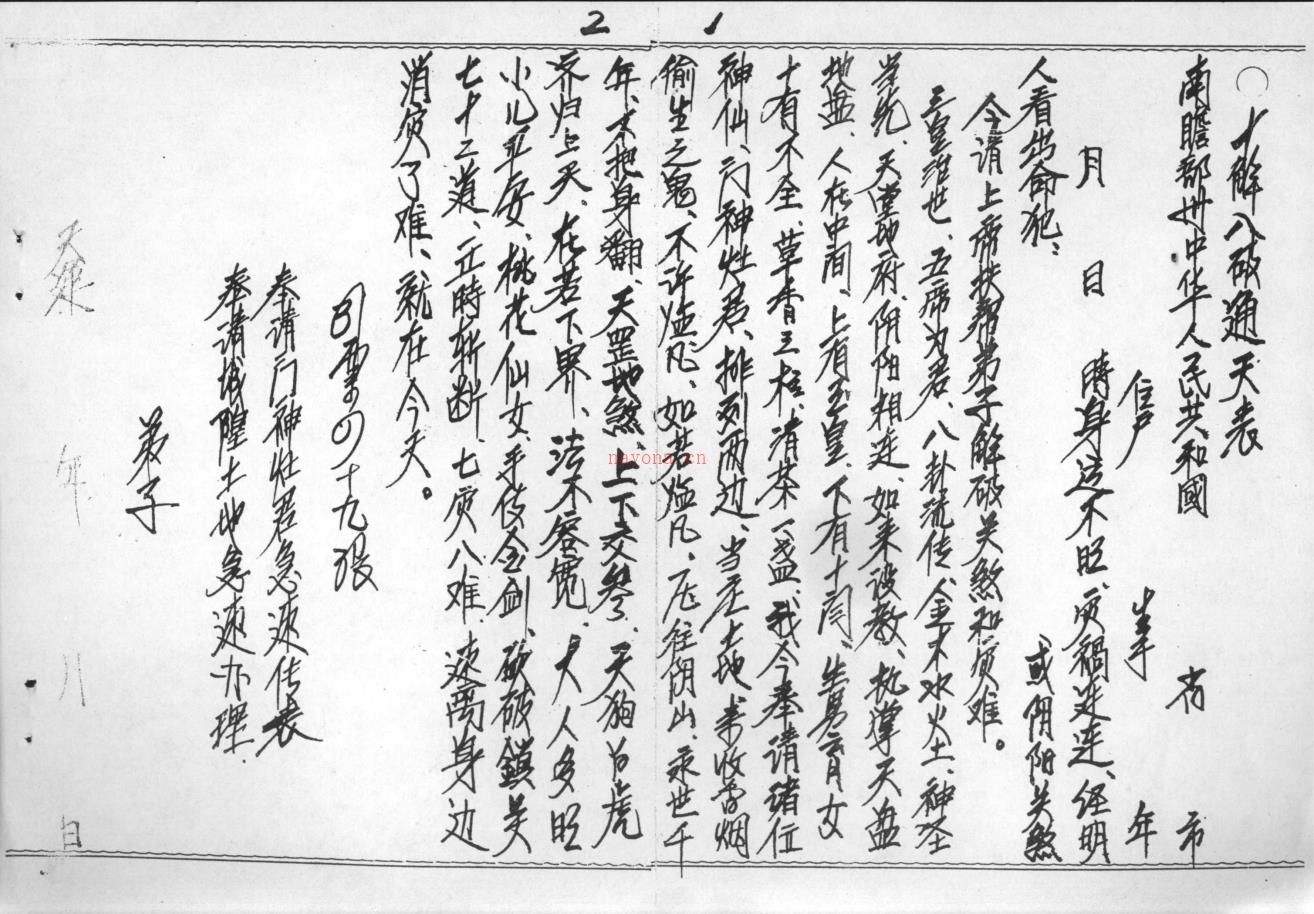 1
○ 十解八破通天表
南瞻部卅中华人民共和國 省 市
住户 生年 年
月 日 時身运不旺、灾禍连连、经明
人看出命犯： 或阴阳关煞
今请上帝扶帮弟子解破关煞和灾难。
三皇治世、五帝为君、八卦流传、金木水火土、神圣
当先、天堂地府、阴阳相连、如来设教、执掌天盘
地盘、人在中间、上有玉皇、下有十闫、生男育女
十有不全、草香三柱、清茶一盏、我今奉请诸位
神仙、门神灶君、排列两边、当庄土地、来收香烟
2
偷生之鬼、不许临凡、如若临凡、压往阴山、永世千
年、不把身翻、天罡地煞、上下交參、天狗白虎
齐归上天、在若下界、法不容宽、大人多旺
小儿平安、桃花仙女、手传金剑、砍破鎖关
七十二道、立時斩断、七灾八难、速离身边
消灾了难、就在今天。
十九狠
奉请门神灶君急速传表
奉请城隍土地急速办理.
弟子
天运 年 月 日
nayona.cn